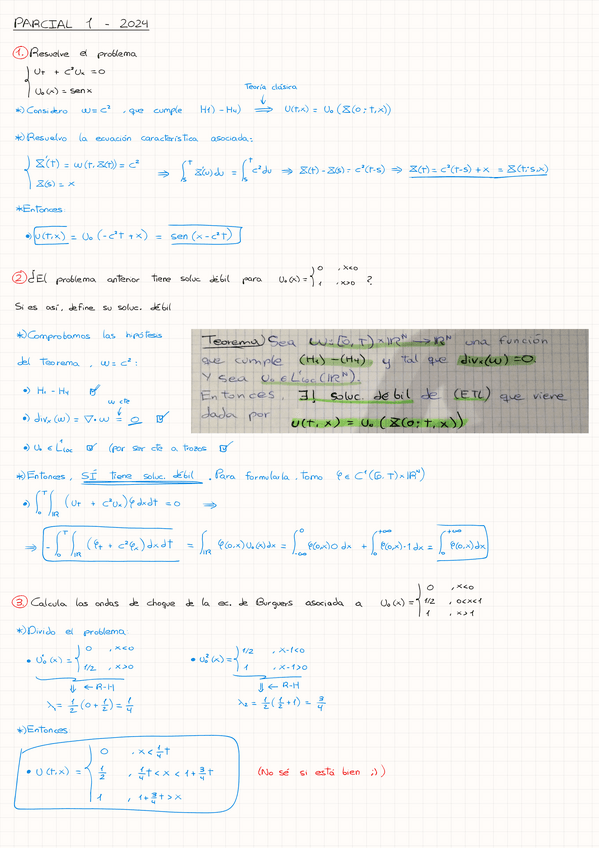 PARCIAL 1 - 2024
1. Resuelve el problema
{ U_t + c²U_x = 0
U_0(x) = senx
Teoría clásica
*) Considero w=c², que cumple H1) - H4) ⟹ U(t,x) = U_0(X(0;t,x))
*) Resuelvo la ecuación característica asociada:
{ X'(t) = w(t,X(t)) = c² ⟹ ∫_s^t X'(u)du = ∫_s^t c²du ⟹ X(t) - X(s) = c²(t-s) ⟹ X(t) = c²(t-s) + x = X(t;s,x)
X(s) = x
*Entonces:
•) U(t,x) = U_0(-c²t + x) = sen(x-c²t)
2. ¿El problema anterior tiene soluc. débil para U_0(x) = { 0 , x<0
1 , x>0 ?
Si es así, define su soluc. débil
*) Comprobamos las hipótesis
del Teorema, w=c²:
•) H1 - H4 ☑
w cte
•) div_x(w) = ∇·w = 0 ☑
•) U_0 ∈ L¹_Loc ☑ (por ser cte a trozos ☑
Teorema) Sea w=[0,T)×ℝ^N → ℝ^N una función
que cumple (H1)-(H4) y tal que div_x(w)=0.
Y sea U_0 ∈ L¹_Loc(ℝ^N).
Entonces, ∃! soluc. débil de (ETL) que viene
dada por
U(t,x) = U_0(X(0;t,x))
*) Entonces, SÍ tiene soluc. débil. Para formularla, tomo φ ∈ C¹([0,T)×ℝ^N)
•) ∫_0^T ∫_ℝ (U_t + c²U_x)φ dxdt = 0 ⟹
⟹ -∫_0^T ∫_ℝ (φ_t + c²φ_x) dxdt = ∫_ℝ φ(0,x)U_0(x)dx = ∫_{-∞}^0 φ(0,x)0 dx + ∫_0^{+∞} φ(0,x)·1 dx = ∫_0^{+∞} φ(0,x)dx
3. Calcula las ondas de choque de la ec. de Burguers asociada a U_0(x) = { 0 , x<0
1/2 , 0<x<1
1 , x>1
*) Divido el problema:
• U_0^1(x) = { 0 , x<0
1/2 , x>0
⇓ ← R-H
λ = 1/2 (0 + 1/2) = 1/4
• U_0^2(x) = { 1/2 , x-1<0
1 , x-1>0
⇓ ← R-H
λ_2 = 1/2 (1/2 + 1) = 3/4
*) Entonces:
• U(t,x) = { 0 , x < 1/4 t
1/2 , 1/4 t < x < 1 + 3/4 t
1 , 1 + 3/4 t > x
(No sé si está bien ;))